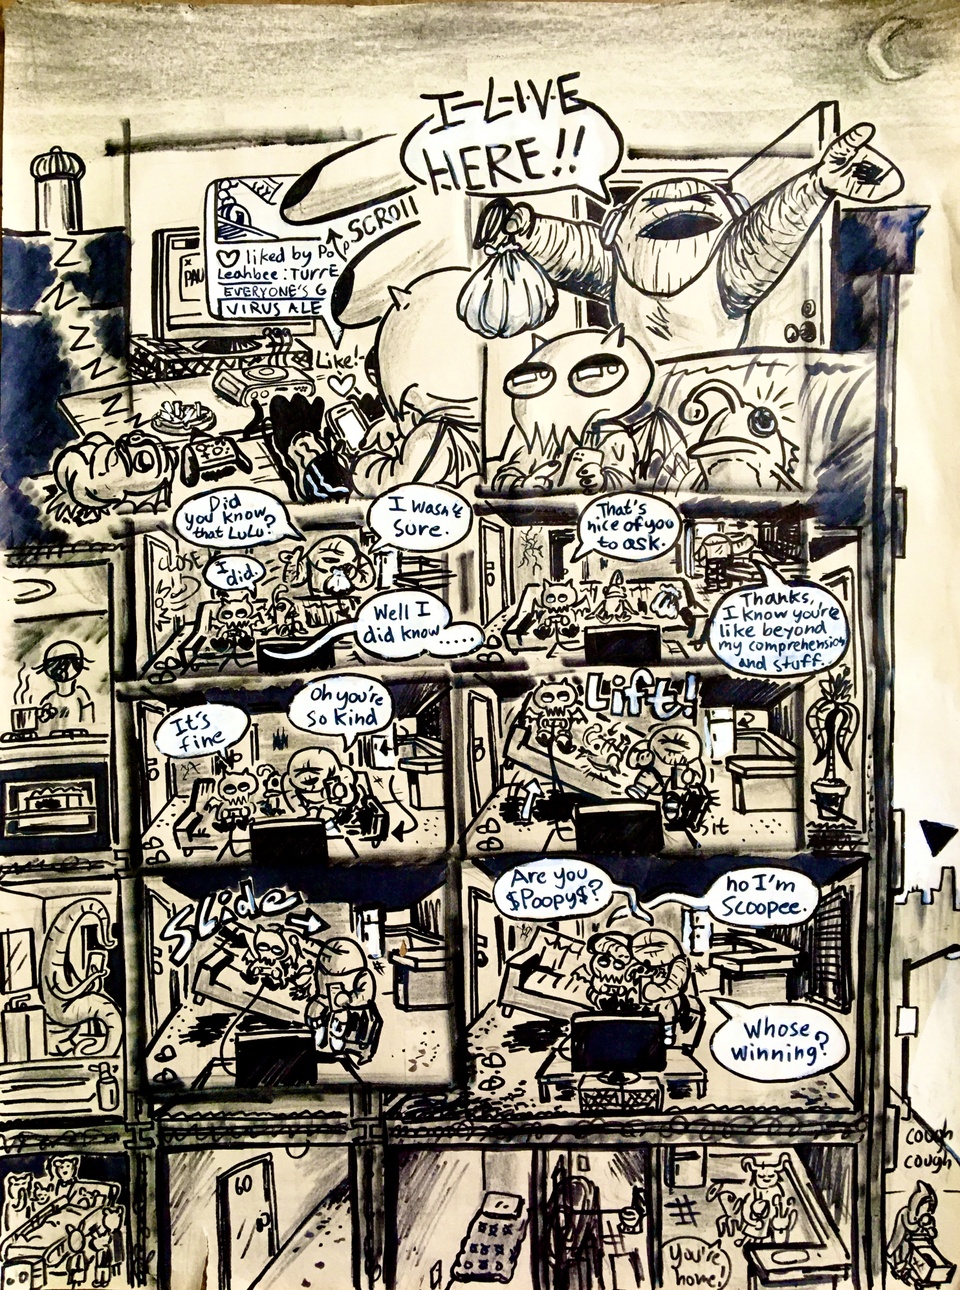 I-L-I-V-E
HERE!!
SCROll
liked by Po
Leahbee: TurrE
EVERYONE'S G
VIRUS ALE
PAU
Like!
Z
Z
Z
Z
Z
Did
you know?
that LuLu?
I wasn't
sure.
I
did.
Well I
did know......
close
That's
nice of you
to ask.
Thanks,
I know you're
like beyond
my comprehension
and stuff..
It's
fine
Oh you're
so kind
Lift!
sit
Slide
Are you
$Poopy$?
no I'm
Scoopee.
Whose
winning?
cough
cough
60
#
You're
home!